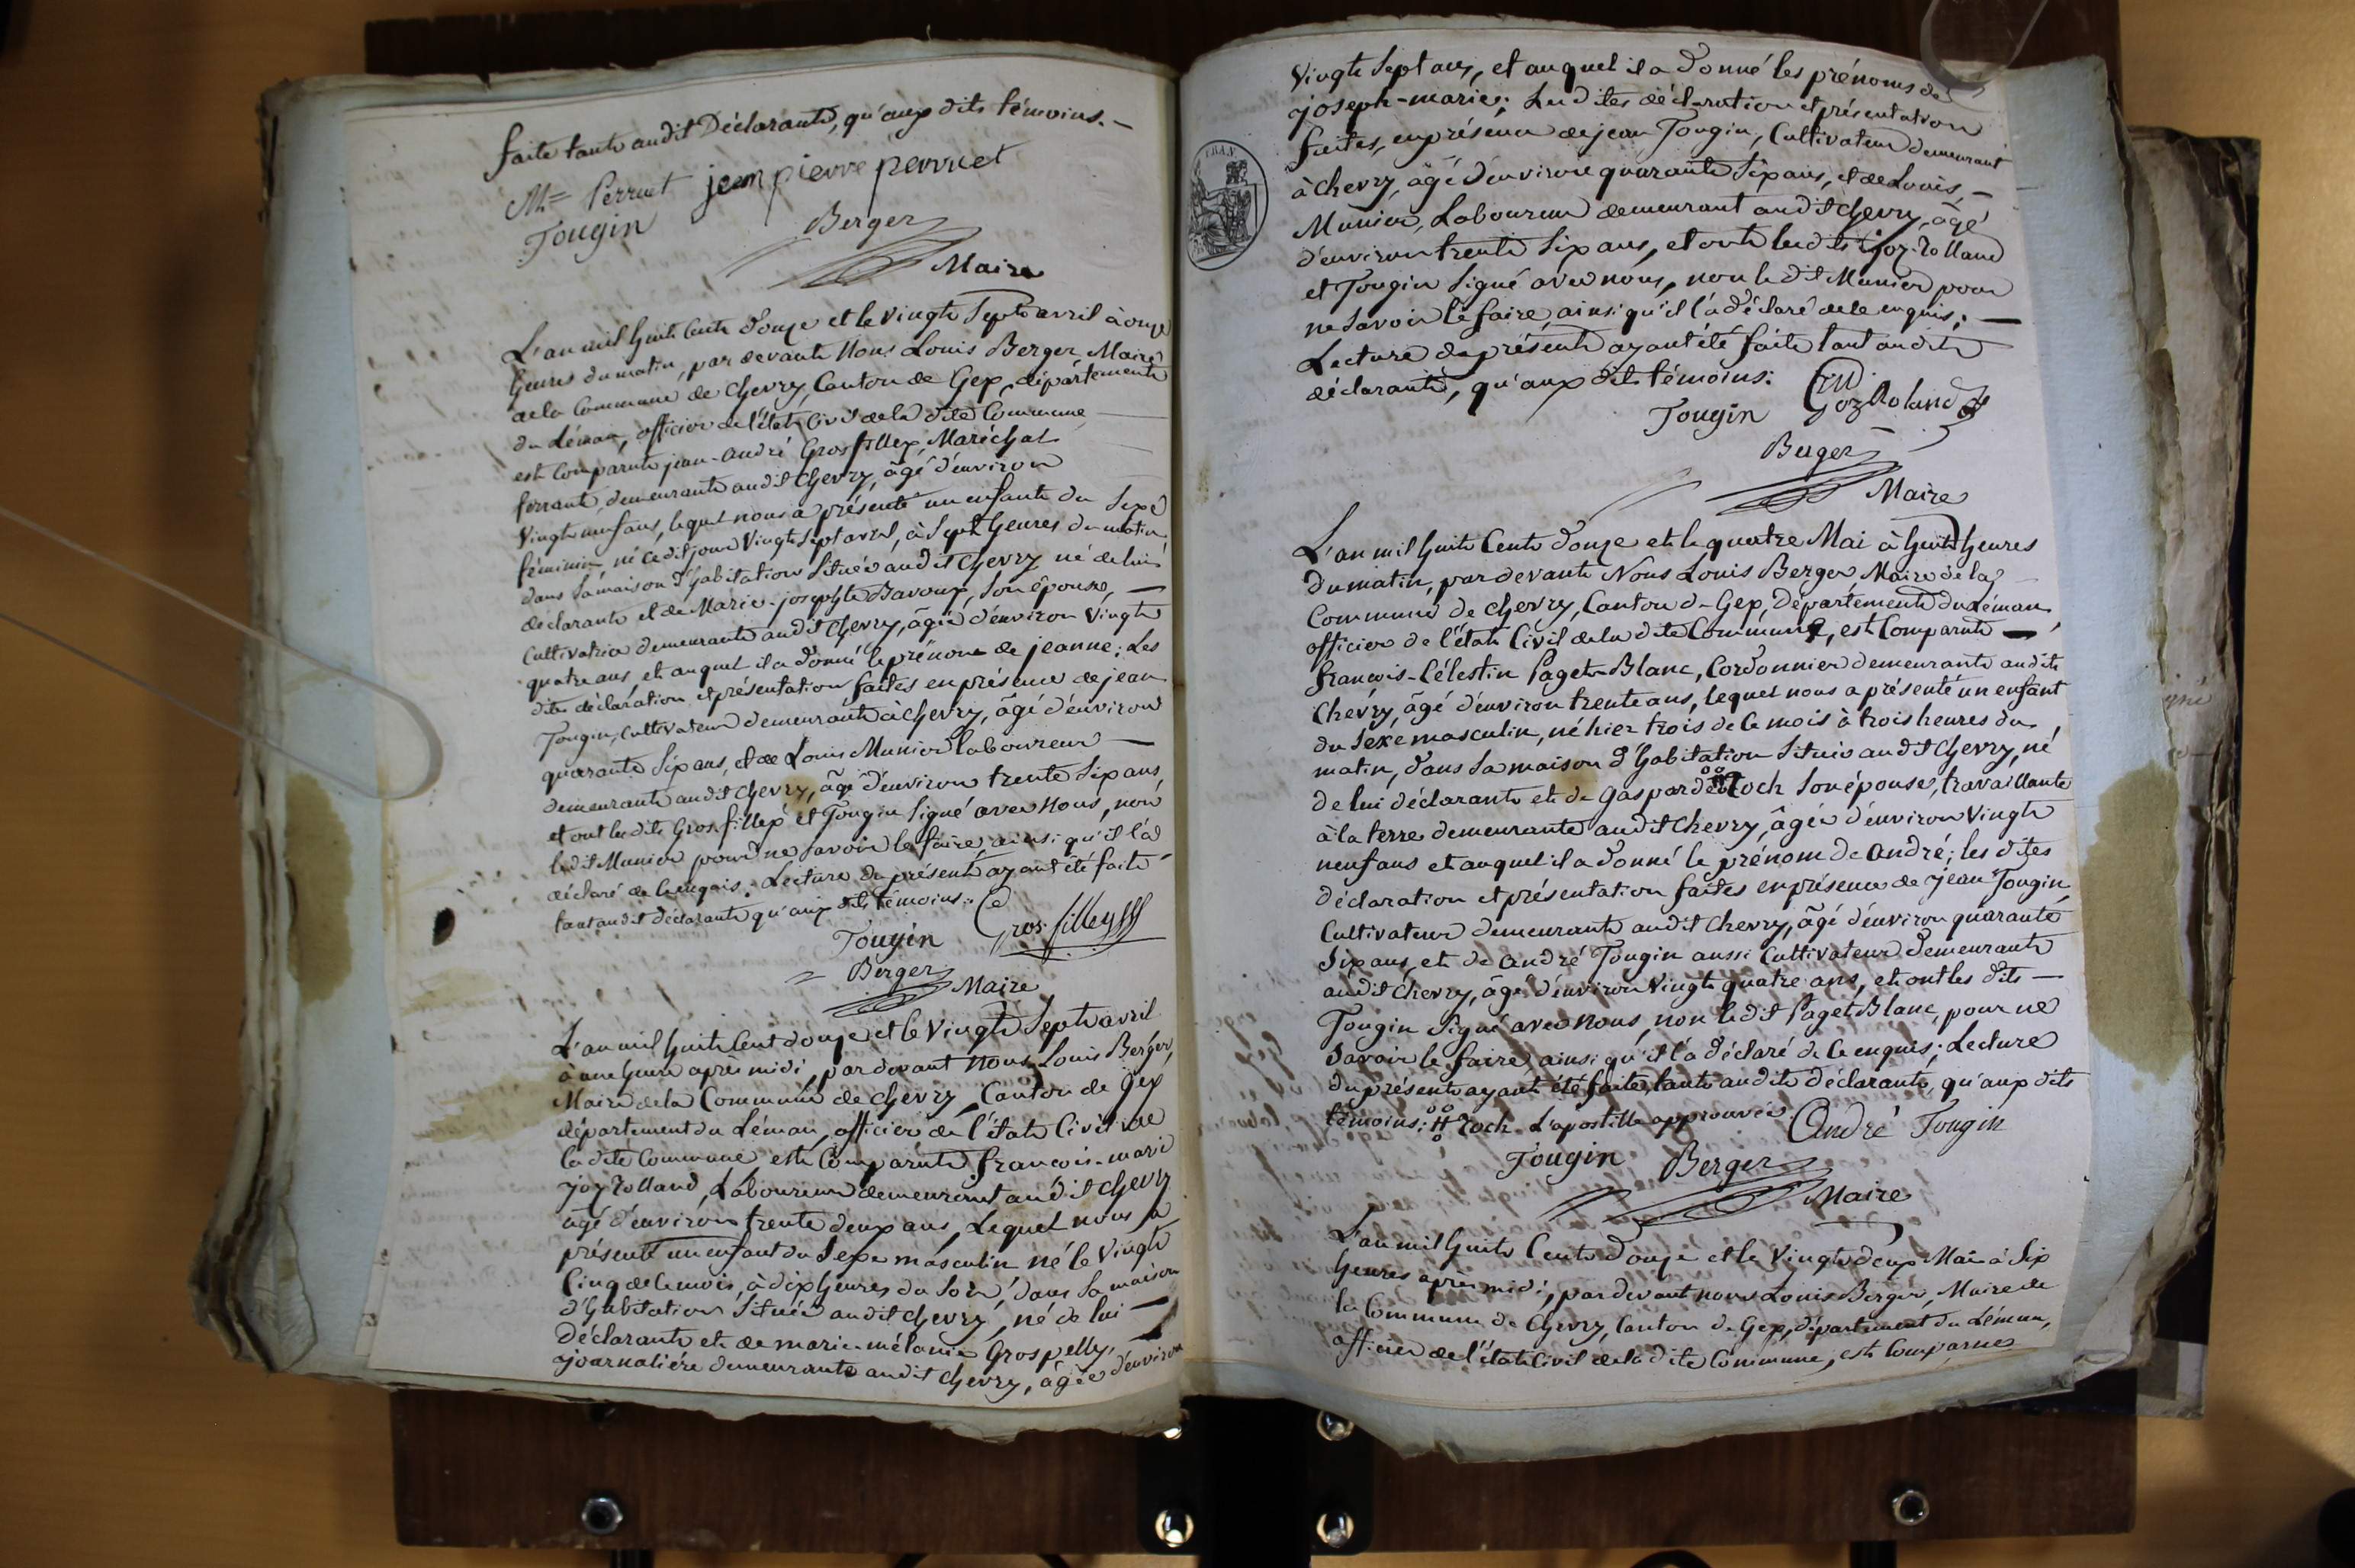 faite tant audit Déclarant, qu'aux dits témoins. —
Mie Perruet jean pierre perruet
Tougin Berger
Maire
L'an mil huit Cent douze et le vingt Sept avril à onze
heures du matin, par devant Nous Louis Berger, Maire
de la Commune de Chevry, Canton de Gex, département
du Léman, officier de l'état Civil de la dite Commune
est Comparut jean-andré Grosfillex, Maréchal
ferrant, demeurant audit Chevry, âgé d'environ
Vingt neuf ans, lequel nous a présenté un enfant du Sexe
féminin, né Cedit jour Vingt Sept avril, à Sept heures du matin
dans Sa maison d'habitation Située audit Chevry né de lui
déclarant et de Marie-josephte Bavoux, Son épouse, —
Cultivatrice demeurante audit Chevry, âgée d'environ Vingt
quatre ans, et auquel il a donné le prénom de jeanne; Les
dites déclaration et présentation faites en présence de jean
Tougin, Cultivateur demeurant à Chevry, âgé d'environ
quarante Six ans, et de Louis Munier laboureur —
demeurant audit Chevry, âgé d'environ trente Six ans,
et ont les dits Grosfillex et Tougin Signé avec Nous, non
ledit Munier pour ne savoir le faire, ainsi qu'il l'a
déclaré de Ce enquis. Lecture du présent ayant été faite
tant audit déclarant qu'aux dits témoins.
Tougin Gros-filley
Berger
Maire
L'an mil huit Cent douze et le Vingt Sept avril
à une heure après midi, par devant Nous Louis Berger,
Maire de la Commune de Chevry, Canton de Gex
département du Léman, officier de l'état Civil de
la dite Commune est Comparut françois-marie
joz Rolland, Laboureur demeurant audit Chevry
âgé d'environ trente deux ans, Lequel nous a
présenté un enfant du Sexe masculin né le Vingt
Cinq de Ce mois, à dix heures du Soir, dans Sa maison
d'habitation Située audit Chevry, né de lui —
Déclarant et de marie-mélanie Grospelly,
journalière demeurante audit Chevry, âgée d'environ
Vingt Sept ans, et auquel il a donné les prénoms de
joseph-marie; Les dites déclaration et présentation
faites, en présence de jean Tougin, Cultivateur demeurant
à Chevry, âgé d'environ quarante Six ans, et de Louis —
Munier, Laboureur demeurant audit Chevry, âgé
d'environ trente Six ans, et ont les dits joz-Rolland
et Tougin Signé avec nous, non le dit Munier pour
ne Savoir le faire, ainsi qu'il l'a déclaré de Ce enquis. —
Lecture du présent ayant été faite tant audit
déclarant, qu'aux dits témoins.
Tougin joz Roland
Berger
Maire
L'an mil huit Cent douze et le quatre Mai à huit heures
du matin, par devant Nous Louis Berger, Maire de la
Commune de Chevry, Canton de Gex, Département du Léman
officier de l'état Civil de la dite Commune, est Comparut —
françois-Célestin Paget-Blanc, Cordonnier demeurant audit
Chevry, âgé d'environ trente ans, lequel nous a présenté un enfant
du Sexe masculin, né hier trois de Ce mois à trois heures du
matin, dans Sa maison d'habitation Située audit Chevry, né
de lui déclarant et de Gasparde Roch Son épouse, travaillante
à la terre demeurante audit Chevry, âgée d'environ Vingt
neuf ans et auquel il a donné le prénom de André; les dites
déclaration et présentation faites en présence de Jean Tougin
Cultivateur demeurant audit Chevry, âgé d'environ quarante
Six ans, et de André Tougin aussi Cultivateur demeurant
audit Chevry, âgé d'environ Vingt quatre ans, et ont les dits —
Tougin Signé avec Nous, non ledit Paget-Blanc, pour ne
Savoir le faire, ainsi qu'il l'a déclaré de Ce enquis; Lecture
du présent ayant été faite, tant audit déclarant, qu'aux dits
témoins. Roch L'apostille approuvée. André Tougin
Tougin Berger
Maire
L'an mil huit Cent douze et le Vingt deux Mai à Six
heures après midi, par devant nous Louis Berger, Maire de
la Commune de Chevry, Canton de Gex, département du Léman,
officier de l'état Civil de la dite Commune, est Comparue